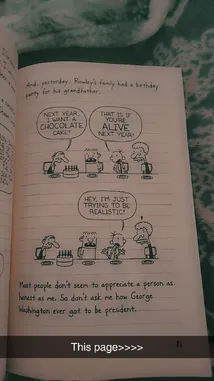 And, yesterday, Rowley's family had a birthday
party for his grandfather.
NEXT YEAR,
I WANT A
CHOCOLATE
CAKE!
THAT IS IF
YOU'RE
ALIVE
NEXT YEAR!
HEY, I'M JUST
TRYING TO BE
REALISTIC!
Most people don't seem to appreciate a person as
honest as me. So don't ask me how George
Washington ever got to be president.
This page>>>>